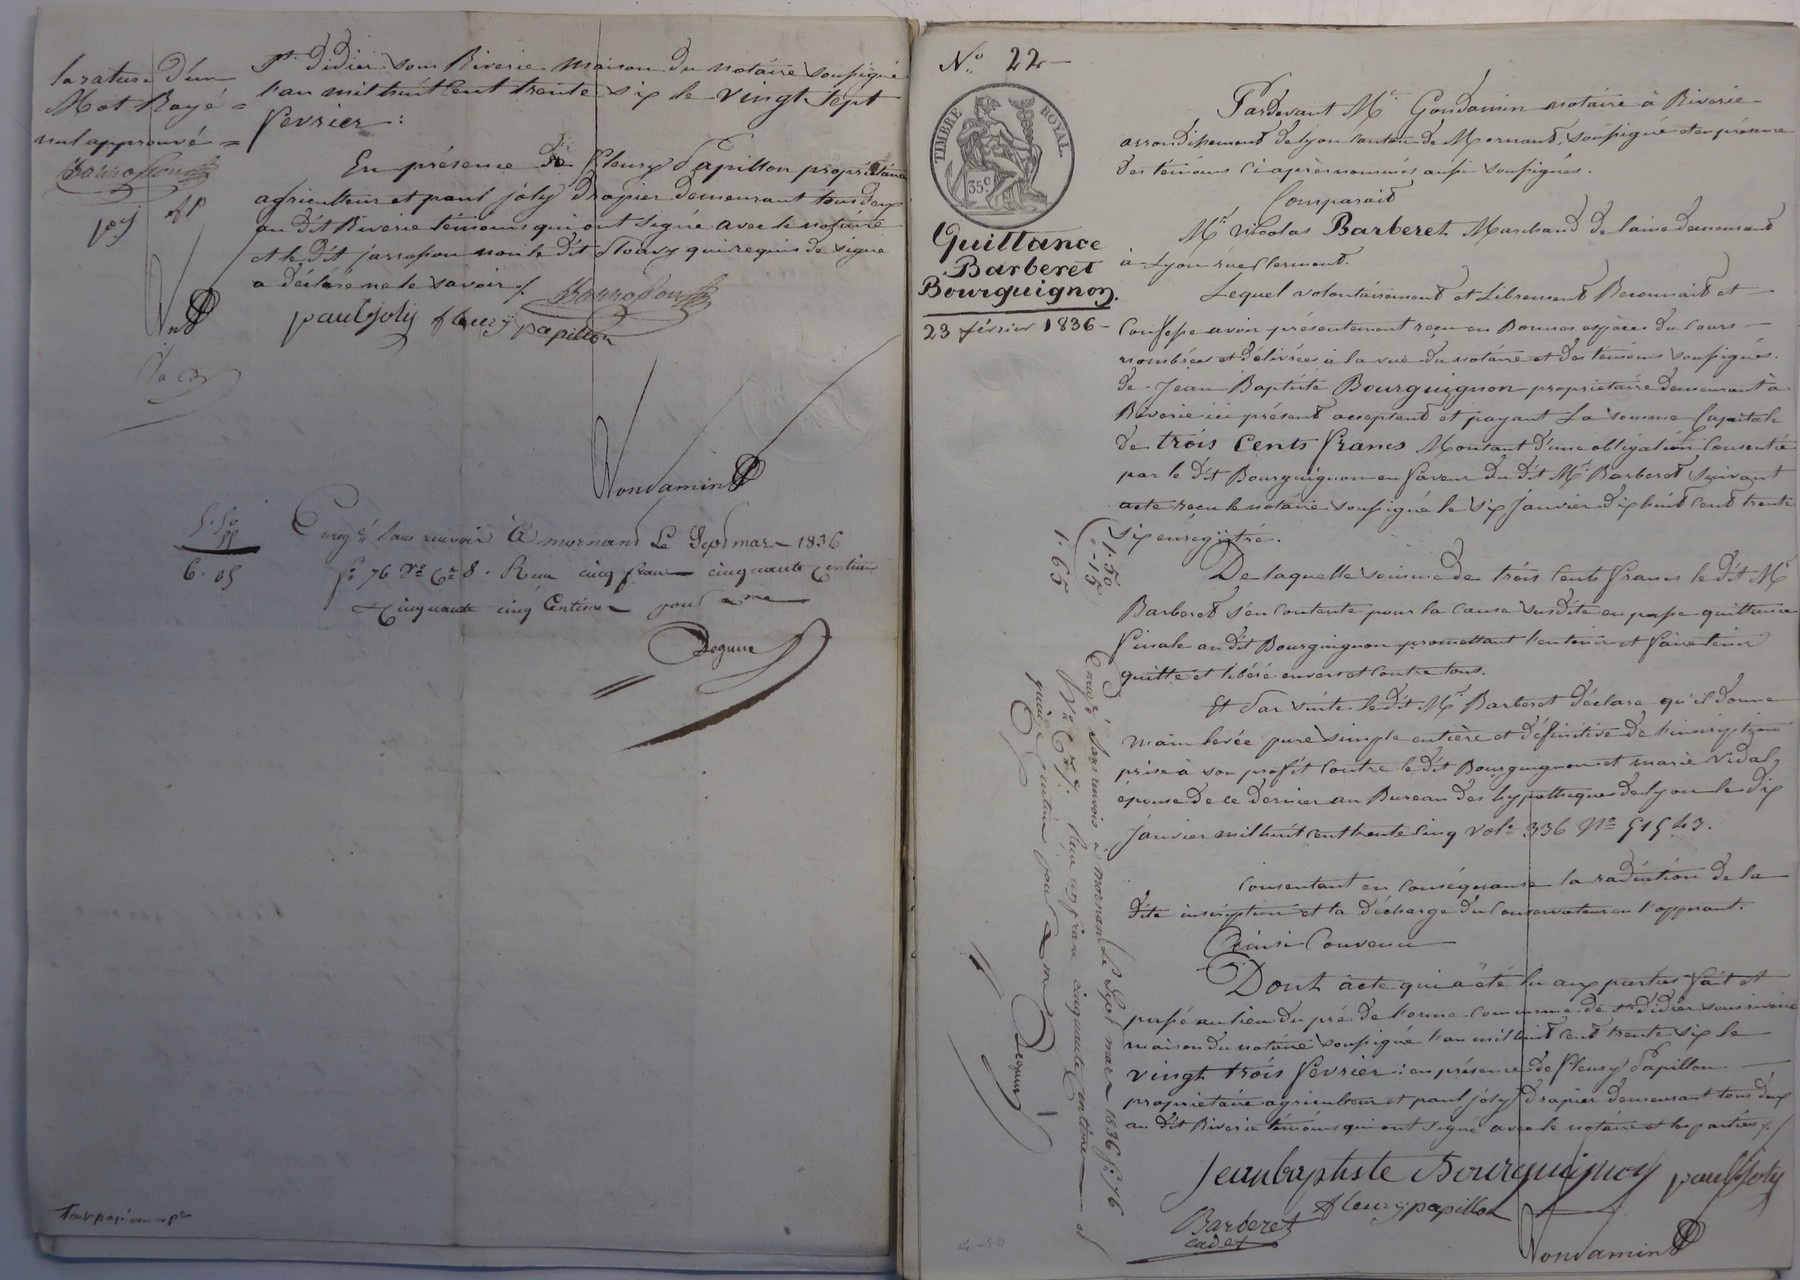 la rature d'un
Mot Rayé =
nul approuvé =
pj fP
St. didier sous Riverie maison du notaire soussigné
l'an mil huit cent trente six le vingt sept
fevrier :
En présence de fleury Papillon propriétaire
agriculteur et paul joly drapier demeurant tous deux
au dit Riverie témoins qui ont signé avec le notaire
et le dit jarrosson non le dit qui requis de signer
a déclaré ne le savoir /.
paul joly fleury papillon
Gondamin
5. 50
55
6. 05
Enregé sans renvoi à mornant Le Sept mars 1836
fo 76 Vo Ce 8. Reçu cinq francs cinquante centimes
& cinquante cinq Centimes pour dme
Deguse
No. 22
TIMBRE ROYAL
35c
Quittance
Barberet
Bourguignon.
23 février 1836
Pardevant Me Gondamin notaire à Riverie
arrondissement de lyon canton de Mornant, soussigné et en présence
des témoins ci après nommés aussi soussignés.
Comparait
Mr. Nicolas Barberet Marchand de laine demeurant
à Lyon rue Clermont.
Lequel volontairement et Librement Reconnait et
Confesse avoir présentement reçu en Bonnes espèces du Cours
nombrées et délivrées à la vue du notaire et des témoins soussignés.
de Jean Baptiste Bourguignon propriétaire demeurant à
Riverie ici présent acceptant et payant La somme Capitale
de trois Cents francs Montant d'une obligation Consentie
par le dit Bourguignon en faveur du dit Mr. Barberet Suivant
acte reçu le notaire soussigné le six Janvier dix huit cent trente
six enrégistré.
De laquelle somme de trois Cents francs le dit Mr
Barberet s'en contente pour la cause susdite en passe quittance
finale au dit Bourguignon promettant l'en tenir et faire tenir
quitte et libéré envers et contre tous.
Et Par suite le dit Mr. Barberet déclare qu'il donne
main levée pure simple entière et définitive de l'inscription
prise à son profit Contre le dit Bourguignon et marie Vidal,
épouse de ce dernier au Bureau des hypothèques de lyon le dix
Janvier mil huit cent trente cinq vole 336 No 51543.
Consentant en conséquence la radiation de la
dite inscription et la décharge du Conservateur en l'opperant.
Ainsi Convenu
Dont acte qui a été lu aux parties fait et
passé au lieu du pré de l'orme commune de st didier sous riverie
maison du notaire soussigné l'an mil huit cent trente six le
vingt trois fevrier : en présence de fleury Papillon
propriétaire agriculteur et paul joly drapier demeurant tous deux
au dit Riverie témoins qui ont signé avec le notaire et les parties /.
Jean baptiste Bourguignon paul joly
Barberet fleury papillon
cadet
Gondamin
1. 50
0. 15
1. 65
Enregé Sans renvoi à mornant Le Sept mars 1836 fo 76
Vo Ce 7. Reçu un franc cinquante Centimes et
quinze Centimes pour dme
4-50